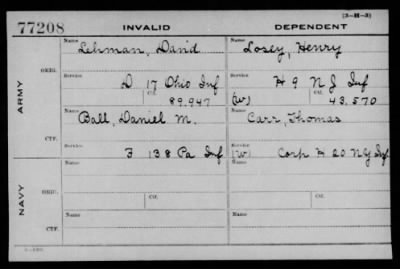 77208 INVALID DEPENDENT (3-M-3)
ARMY
ORIG.
Name Lehman, David Name Losey, Henry
Service D 17 Ohio Inf Service H 9 N J Inf
Ctf. 89.947 (W) Ctf. 43.570
CTF.
Name Ball, Daniel M. Name Carr, Thomas
Service F 138 Pa Inf Service (W) Corp H 20 N Y Inf
NAVY
ORIG.
Name Name
Service Ctf. Service Ctf.
CTF.
Name Name
Service Service